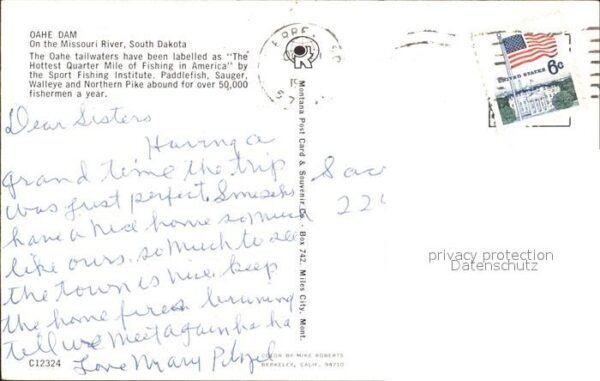 OAHE DAM
On the Missouri River, South Dakota
The Oahe tailwaters have been labelled as "The
Hottest Quarter Mile of Fishing in America" by
the Sport Fishing Institute. Paddlefish, Sauger,
Walleye and Northern Pike abound for over 50,000
fishermen a year.
Dear Sisters
Having a
grand time the trip
was just perfect
have a nice home so much
like ours. so much to see
the town is nice. keep
the home fires burning
till we meet again ha ha
Love Mary
C12324
Montana Post Card & Souvenir Co. - Box 742, Miles City, Mont.
COLOR BY MIKE ROBERTS
BERKELEY, CALIF. 94710
UNITED STATES
6c
Sac
22
privacy protection
Datenschutz